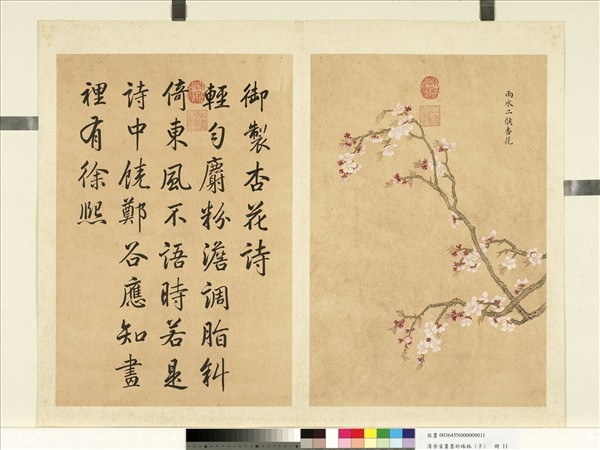 雨水二候杏花
御製杏花詩
輕勻麝粉澹調脂斜
倚東風不語時若是
詩中饒鄭谷應知畫
裡有徐熙
故畫 003645N000000011
清余省畫墨妙珠林(子) 冊 11